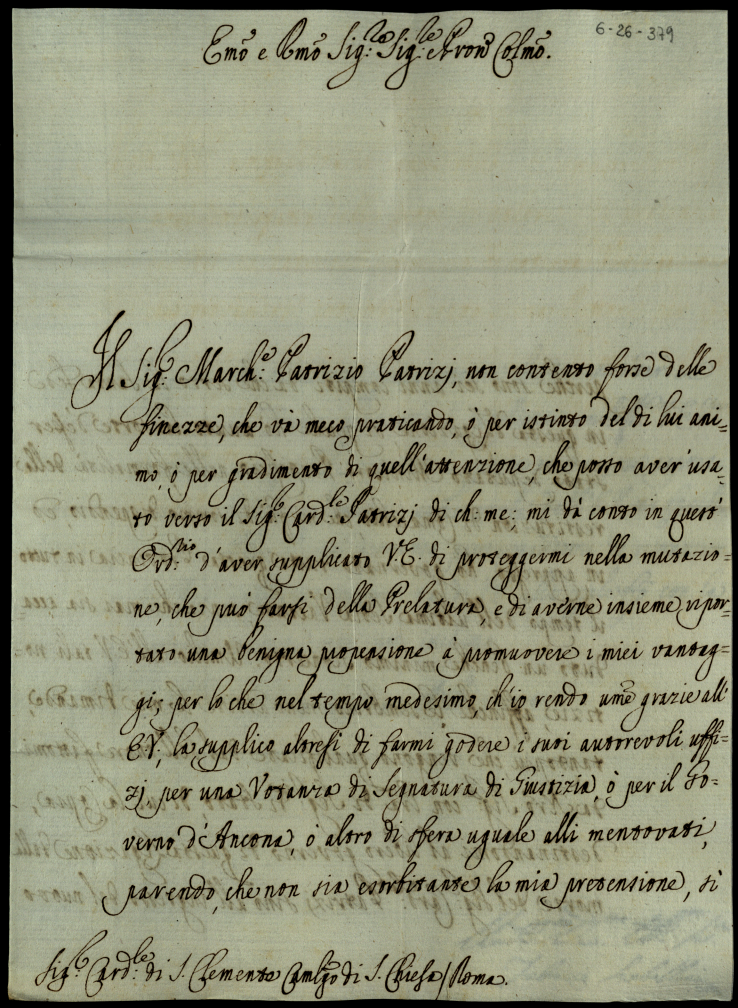 6-26-379
Emo e Rmo Sig:re Sig:re Pron Colmo.
Il Sig.r March:e Patrizio Patrizj, non contento forse delle
finezze, che và meco praticando, ò per istinto del di lui ani-
mo, ò per gradimento di quell'attenzione, che posso aver usa-
to verso il Sig.r Card:le Patrizj di ch: me:, mi dà conto in quest'
Ord:rio d'aver supplicato V.E. di proteggermi nella mutazio-
ne, che può farsi della Prelatura, e di averne insieme ripor-
tato una benigna propensione à promuovere i miei vantag-
gi; per lo che nel tempo medesimo, ch'io rendo ume grazie all'
E.V., la supplico altresì di farmi godere i suoi autorevoli uffi-
zj, per una Votanza di Segnatura di Giustizia, ò per il Go-
verno d'Ancona, ò altro di sfera uguale alli mentovati,
parendo, che non sia esorbitante la mia pretensione, sì
Sig.r Card:le di S. Clemente Camlgo di S. Chiesa / Roma.